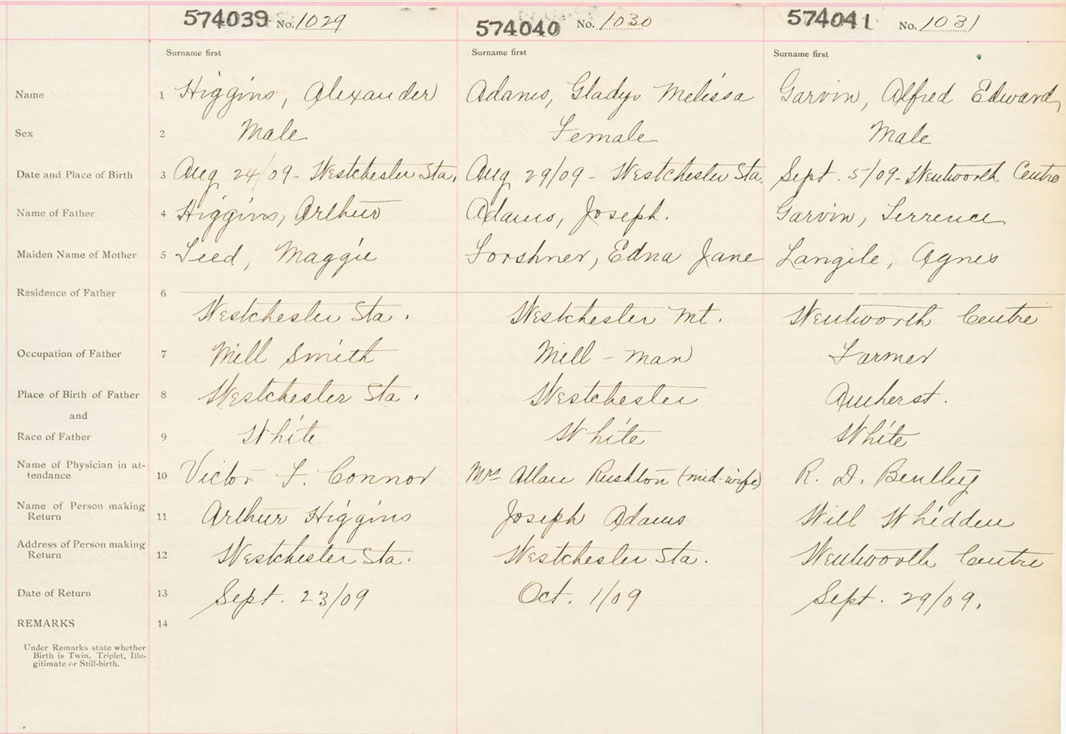 574039 No. 1029 574040 No. 1030 574041 No. 1031
Surname first Surname first Surname first
Name 1 Higgins, Alexander Adams, Gladys Melissa Garvin, Alfred Edward
Sex 2 Male Female Male
Date and Place of Birth 3 Aug 24/09 - Westchester Sta. Aug 29/09 - Westchester Sta. Sept. 5/09 - Wentworth Centre
Name of Father 4 Higgins, Arthur Adams, Joseph. Garvin, Terrence
Maiden Name of Mother 5 Teed, Maggie Forshner, Edna Jane Langile, Agnes
Residence of Father 6
Westchester Sta. Westchester Mt. Wentworth Centre
Occupation of Father 7 Mill Smith Mill - man Farmer
Place of Birth of Father 8 Westchester Sta. Westchester Amherst.
and
Race of Father 9 White White White
Name of Physician in at-
tendance 10 Victor F. Connor Mrs Allan Rushton (mid-wife) R. D. Bentley
Name of Person making
Return 11 Arthur Higgins Joseph Adams Will Whidden
Address of Person making
Return 12 Westchester Sta. Westchester Sta. Wentworth Centre
Date of Return 13 Sept. 23/09 Oct. 1/09 Sept. 29/09.
REMARKS 14
Under Remarks state whether
Birth is Twin, Triplet, Ille-
gitimate or Still-birth.